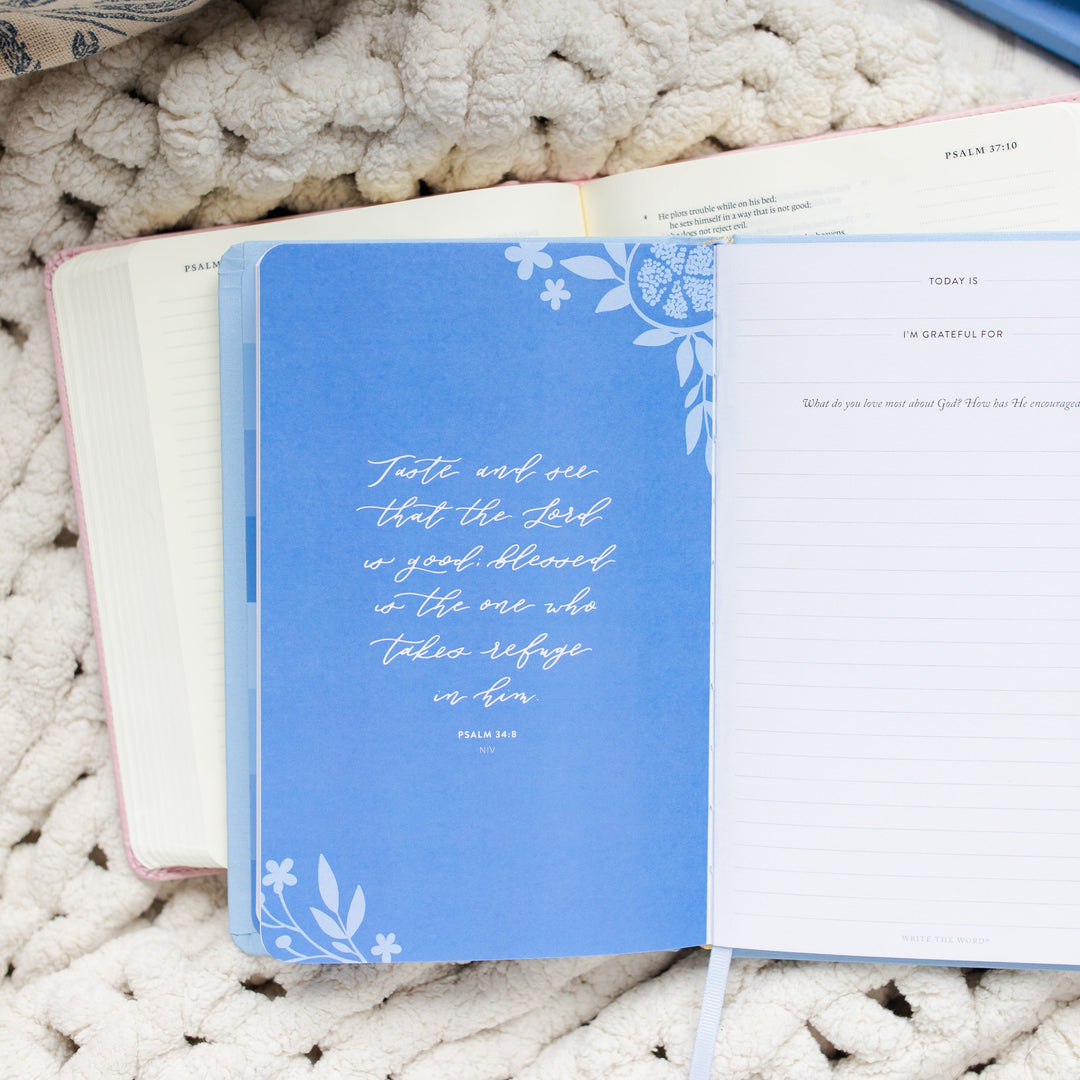 PSALM 37:10
4 He plots trouble while on his bed;
he sets himself in a way that is not good;
he does not reject evil.
heavens,
PSALM
Taste and see
that the Lord
is good; blessed
is the one who
takes refuge
in him.
PSALM 34:8
NIV
TODAY IS
I'M GRATEFUL FOR
What do you love most about God? How has He encouraged
WRITE THE WORD®